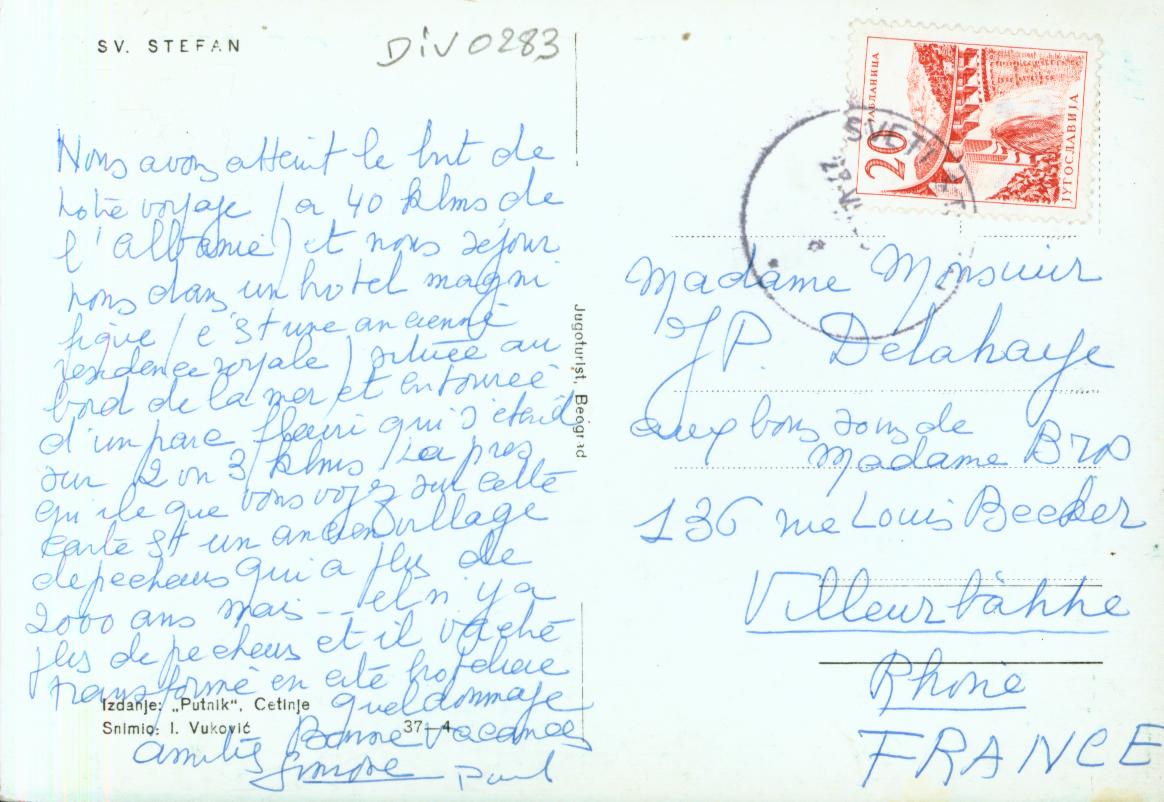 SV. STEFAN
DIV0283
Nous avons atteint le but de
notre voyage (a 40 klms de
l'Albanie) et nous séjour
nons dans un hotel magni
fique (c'st une ancienne
residence royale) située au
bord de la mer et entourée
d'un parc fleuri qui s'étend
sur 2 ou 3 klms. La pres
qu'ile que vous voyez sur cette
carte st un ancien village
de pecheurs qui a plus de
2000 ans mais -- el n'y a
plus de pecheurs et il va être
transformé en cité hoteliere
Quel dommage
amitiés Bonne Vacances
Simone Paul
Izdanje: „Putnik“, Cetinje
Snimio: I. Vuković 37—4
Jugoturist, Beograd
20
ЈАБЛАНИЦА
ЈУГОСЛАВИЈА
SVETI
Madame Monsieur
JP. Delahaye
aux bons soins de
Madame Bros
136 rue Louis Becker
Villeurbanne
Rhône
FRANCE